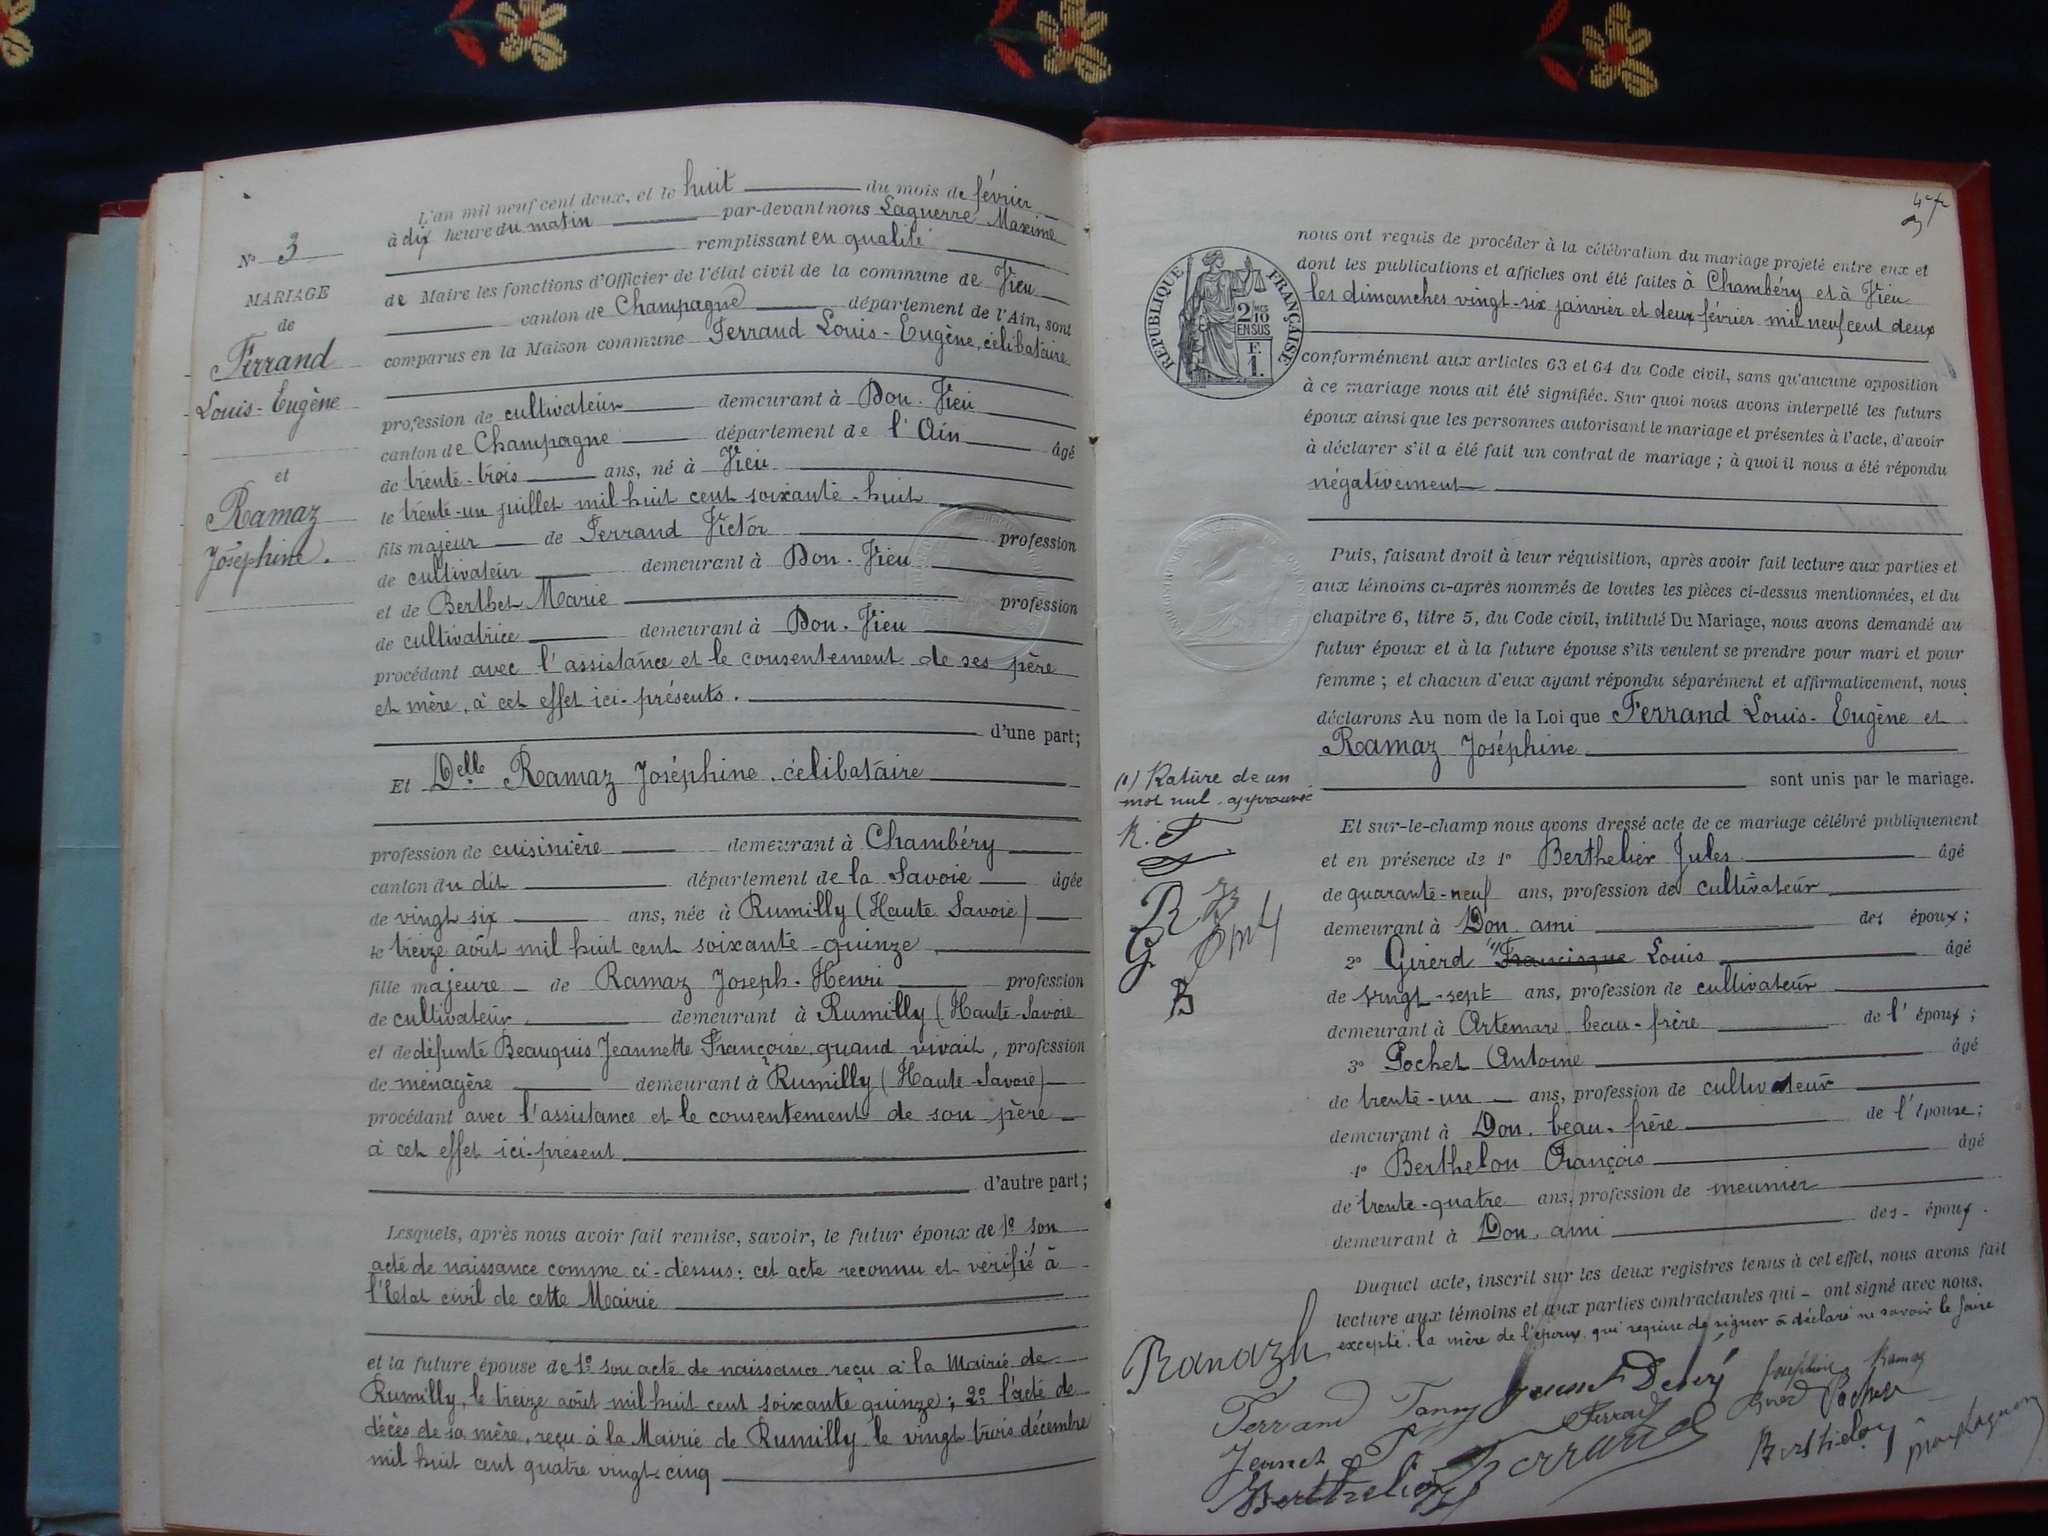 L'an mil neuf cent deux, et le huit du mois de février
à dix heure du matin par-devant nous Laguerre Maxime
remplissant en qualité
de Maire les fonctions d'Officier de l'état civil de la commune de Vieu
canton de Champagne département de l'Ain, sont
comparus en la Maison commune Ferrand Louis-Eugène, célibataire
profession de cultivateur demeurant à Don. Vieu
canton de Champagne département de l'Ain âgé
de trente-trois ans, né à Vieu
le trente-un juillet mil huit cent soixante-huit
fils majeur de Ferrand Victor profession
de cultivateur demeurant à Don. Vieu
et de Berthet Marie profession
de cultivatrice demeurant à Don. Vieu
procédant avec l'assistance et le consentement de ses père
et mère, à cet effet ici-présents.
d'une part;
Et Delle Ramaz Joséphine, célibataire
profession de cuisinière demeurant à Chambéry
canton du dit département de la Savoie âgée
de vingt six ans, née à Rumilly (Haute Savoie)
le treize août mil huit cent soixante-quinze
fille majeure de Ramaz Joseph-Henri profession
de cultivateur demeurant à Rumilly (Haute-Savoie
et de défunte Beauquis Jeannette Françoise, quand vivait, profession
de ménagère demeurant à Rumilly (Haute-Savoie)
procédant avec l'assistance et le consentement de son père
à cet effet ici-présent
d'autre part;
Lesquels, après nous avoir fait remise, savoir, le futur époux de 1º son
acte de naissance comme ci-dessus: cet acte reconnu et vérifié à
l'Etat civil de cette Mairie
et la future épouse de 1º son acte de naissance reçu à la Mairie de
Rumilly, le treize août mil huit cent soixante quinze; 2º l'acte de
décès de sa mère, reçu à la Mairie de Rumilly le vingt trois décembre
mil huit cent quatre vingt-cinq
Nº 3
MARIAGE
de
Ferrand
Louis-Eugène
et
Ramaz
Joséphine.
RÉPUBLIQUE FRANÇAISE
2/10
EN SUS
F.
1.
nous ont requis de procéder à la célébration du mariage projeté entre eux et
dont les publications et affiches ont été faites à Chambéry et à Vieu
les dimanches vingt-six janvier et deux février mil neuf cent deux
conformément aux articles 63 et 64 du Code civil, sans qu'aucune opposition
à ce mariage nous ait été signifiée. Sur quoi nous avons interpellé les futurs
époux ainsi que les personnes autorisant le mariage et présentes à l'acte, d'avoir
à déclarer s'il a été fait un contrat de mariage; à quoi il nous a été répondu
négativement
Puis, faisant droit à leur réquisition, après avoir fait lecture aux parties et
aux témoins ci-après nommés de toutes les pièces ci-dessus mentionnées, et du
chapitre 6, titre 5, du Code civil, intitulé Du Mariage, nous avons demandé au
futur époux et à la future épouse s'ils veulent se prendre pour mari et pour
femme; et chacun d'eux ayant répondu séparément et affirmativement, nous
déclarons Au nom de la Loi que Ferrand Louis-Eugène et
Ramaz Joséphine
sont unis par le mariage.
Et sur-le-champ nous avons dressé acte de ce mariage célébré publiquement
et en présence de 1º Berthelier Jules âgé
de quarante-neuf ans, profession de cultivateur
demeurant à Don. ami des époux;
2º Girerd (1) Francisque Louis âgé
de vingt-sept ans, profession de cultivateur
demeurant à Artemare, beau-frère de l'époux;
3º Pochet Antoine âgé
de trente-un ans, profession de cultivateur
demeurant à Don. beau-frère de l'épouse;
4º Berthelon François âgé
de trente-quatre ans, profession de meunier
demeurant à Don. ami des époux.
Duquel acte, inscrit sur les deux registres tenus à cet effet, nous avons fait
lecture aux témoins et aux parties contractantes qui ont signé avec nous.
excepté la mère de l'époux qui requise de signer a déclaré ne savoir le faire
(1) Rature de un
mot nul approuvée
Ramaz h
Joséphine Ramaz
Ferrand Fanny
Ferrand
Pochet
Berthelier
Ferrand
Berthelon